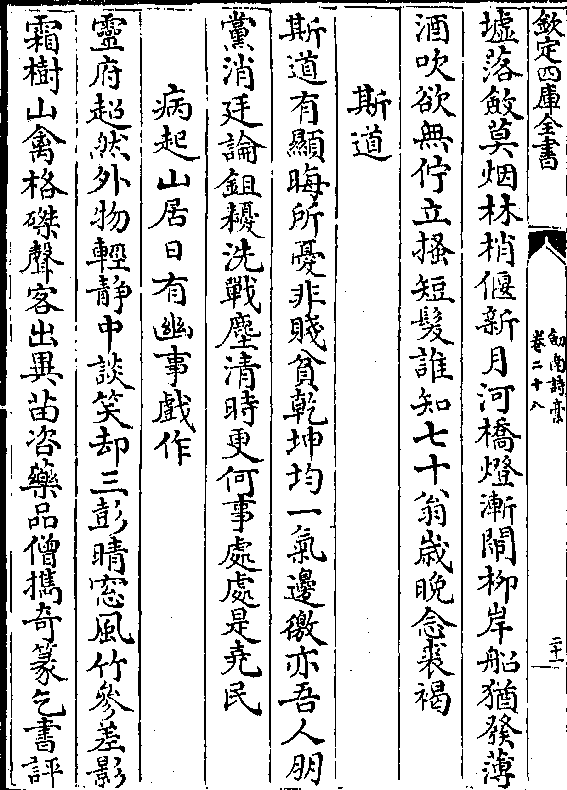 欽定四庫全書
劒南詩稾
卷二十八
二十一
墟落斂莫烟林梢偃新月河橋燈漸鬧柳岸船猶發薄
酒吹欲無佇立搔短髮誰知七十翁嵗晚念裘褐
斯道
斯道有顯晦所憂非賤貧乾坤均一氣邊徼亦吾人朋
黨消廷論鉏耰洗戰塵清時更何事處處是堯民
病起山居日有幽事戲作
靈府超然外物輕靜中談笑却三彭晴窓風竹參差影
霜樹山禽格磔聲客出異苗咨藥品僧攜奇篆乞書評